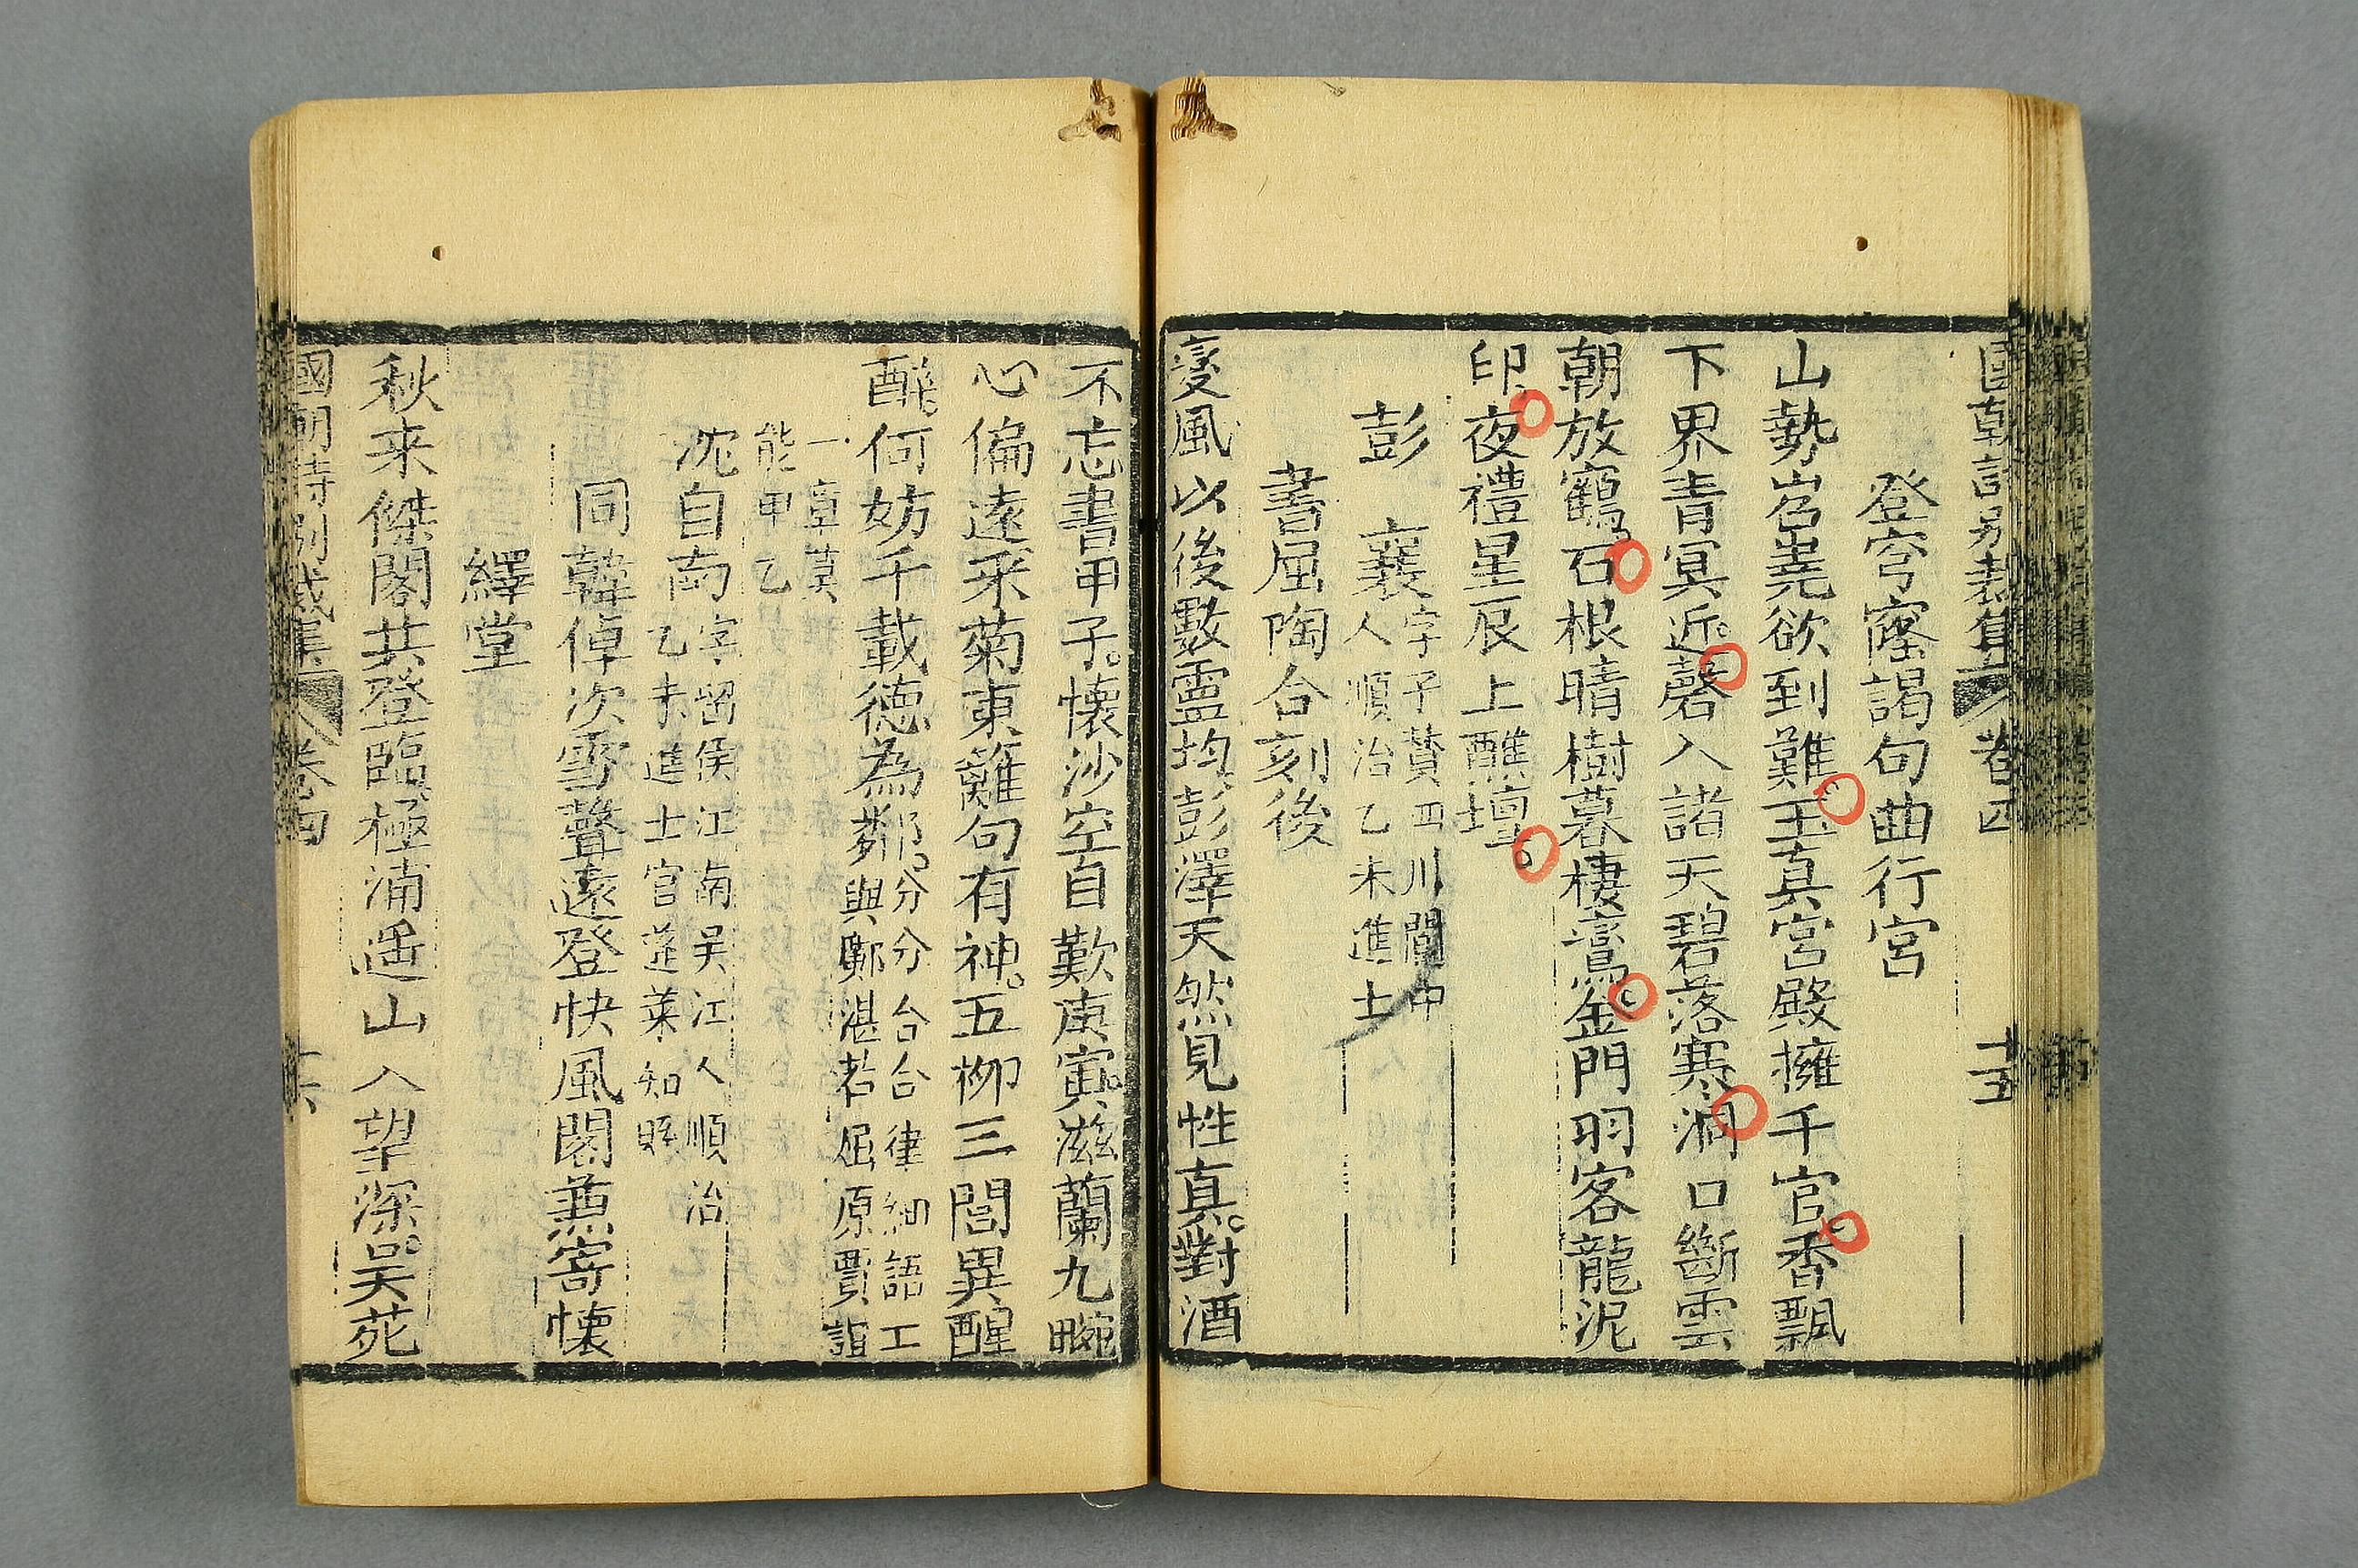 國朝詩別裁集 卷四 十五
登穹窿謁句曲行宮
山勢岧嶤欲到難。玉真宮殿擁千官。香飄
下界青冥近。磬入諸天碧落寒。洞口斷雲
朝放鶴。石根晴樹暮棲鸞。金門羽客龍泥
印。夜禮星辰上醮壇。
彭襄 字子贊四川閬中人順治乙未進士
書屈陶合刻後
變風以後數靈均。彭澤天然見性真。對酒
不忘書甲子。懷沙空自歎庚寅。滋蘭九畹
心偏遠。采菊東籬句有神。五柳三閭異醒
醉。何妨千載德為鄰。分分合合律細語工與鄭湛若屈原賈誼
一章莫能甲乙
沈自南 字留侯江南吳江人順治乙未進士官蓬萊知縣
同韓倬次雪聲遠登快風閣兼寄懷
繹堂
秋来傑閣共登臨。極浦遥山入望深。吴苑
國朝詩別裁集 卷四 十六